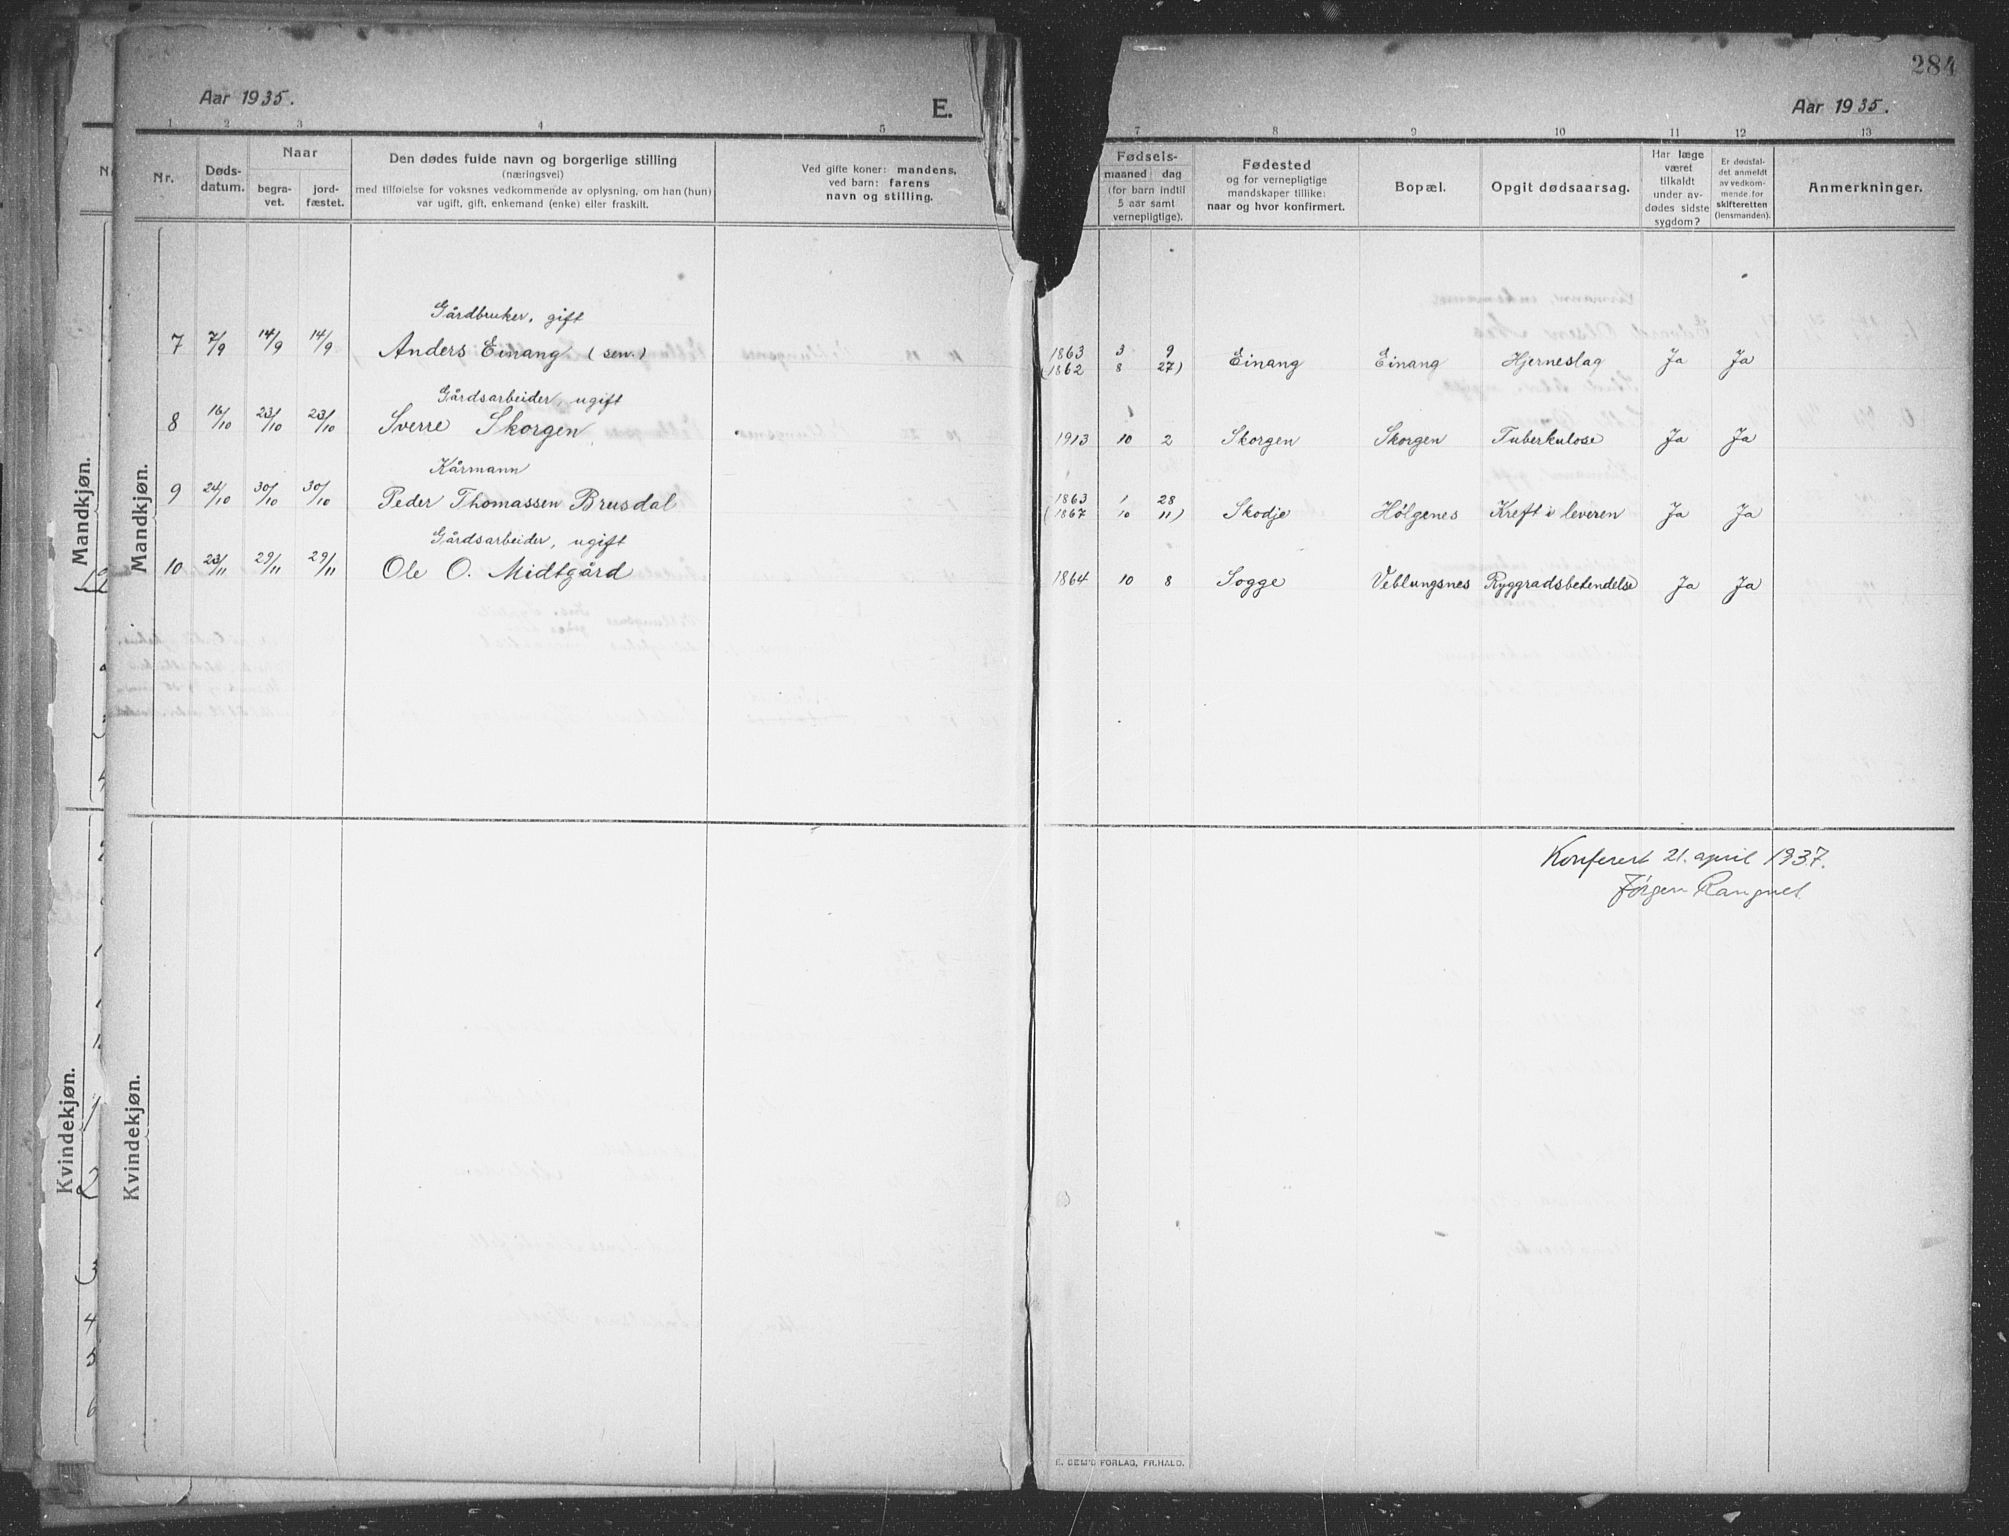 284
Aar 1935.
E.
Aar 1935.
1 2 3 4 5 7 8 9 10 11 12 13
Nr.
Døds-
datum.
Naar
begra-
vet.
jord-
fæstet.
Den dødes fulde navn og borgerlige stilling
(næringsvei)
med tilføielse for voksnes vedkommende av oplysning, om han (hun)
var ugift, gift, enkemand (enke) eller fraskilt.
Ved gifte koner: mandens,
ved barn: farens
navn og stilling.
Fødsels-
maaned dag
(for barn indtil
5 aar samt
vernepligtige).
Fødested
og for vernepligtige
mandskaper tillike:
naar og hvor konfirmert.
Bopæl.
Opgit dødsaarsag.
Har læge
været
tilkaldt
under av-
dødes sidste
sygdom?
Er dødsfal-
det anmeldt
av vedkom-
mende for
skifteretten
(lensmanden).
Anmerkninger.
Mandkjøn.
Mandkjøn.
Gårdbruker, gift
7 7/9 14/9 14/9 Anders Einang (sen.) 1863 3 9 Einang Einang Hjerneslag Ja Ja
(1862 8 27)
Gårdsarbeider, ugift
8 16/10 23/10 23/10 Sverre Skorgen 1913 10 2 Skorgen Skorgen Tuberkulose Ja Ja
Kårmann
9 24/10 30/10 30/10 Peder Thomassen Brusdal 1863 1 28 Skodje Hølgenes Kreft i leveren Ja Ja
(1867 10 11)
Gårdsarbeider, ugift
10 23/11 29/11 29/11 Ole O. Midtgård 1864 10 8 Sogge Veblungsnes Ryggradsbetendelse Ja Ja
Konferert 21. april 1937.
Jørgen Rangnes
Kvindekjøn.
Kvindekjøn.
E. SEM'S FORLAG, FR.HALD.